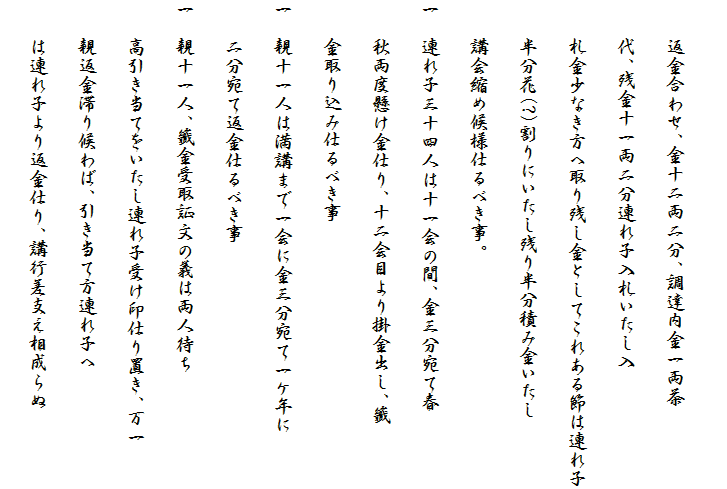 返金合わせ、金十二両二分、調達内金一両茶
代、残金十一両二分連れ子入札いたし入
札金少なき方へ取り残し金としてこれある節は連れ子
半分花(?)割りにいたし残り半分積み金いたし
講会縮め候様仕るべき事。
一 連れ子三十四人は十一会の間、金三分宛て春
秋両度懸け金仕り、十二会目より掛金出し、籤
金取り込み仕るべき事
一 親十一人は満講まで一会に金三分宛て一ケ年に
二分宛て返金仕るべき事
一 親十一人、籤金受取証文の義は両人待ち
高引き当てをいたし連れ子受け印仕り置き、万一
親返金滞り候わば、引き当て方連れ子へ
は連れ子より返金仕り、講行差支え相成らぬ